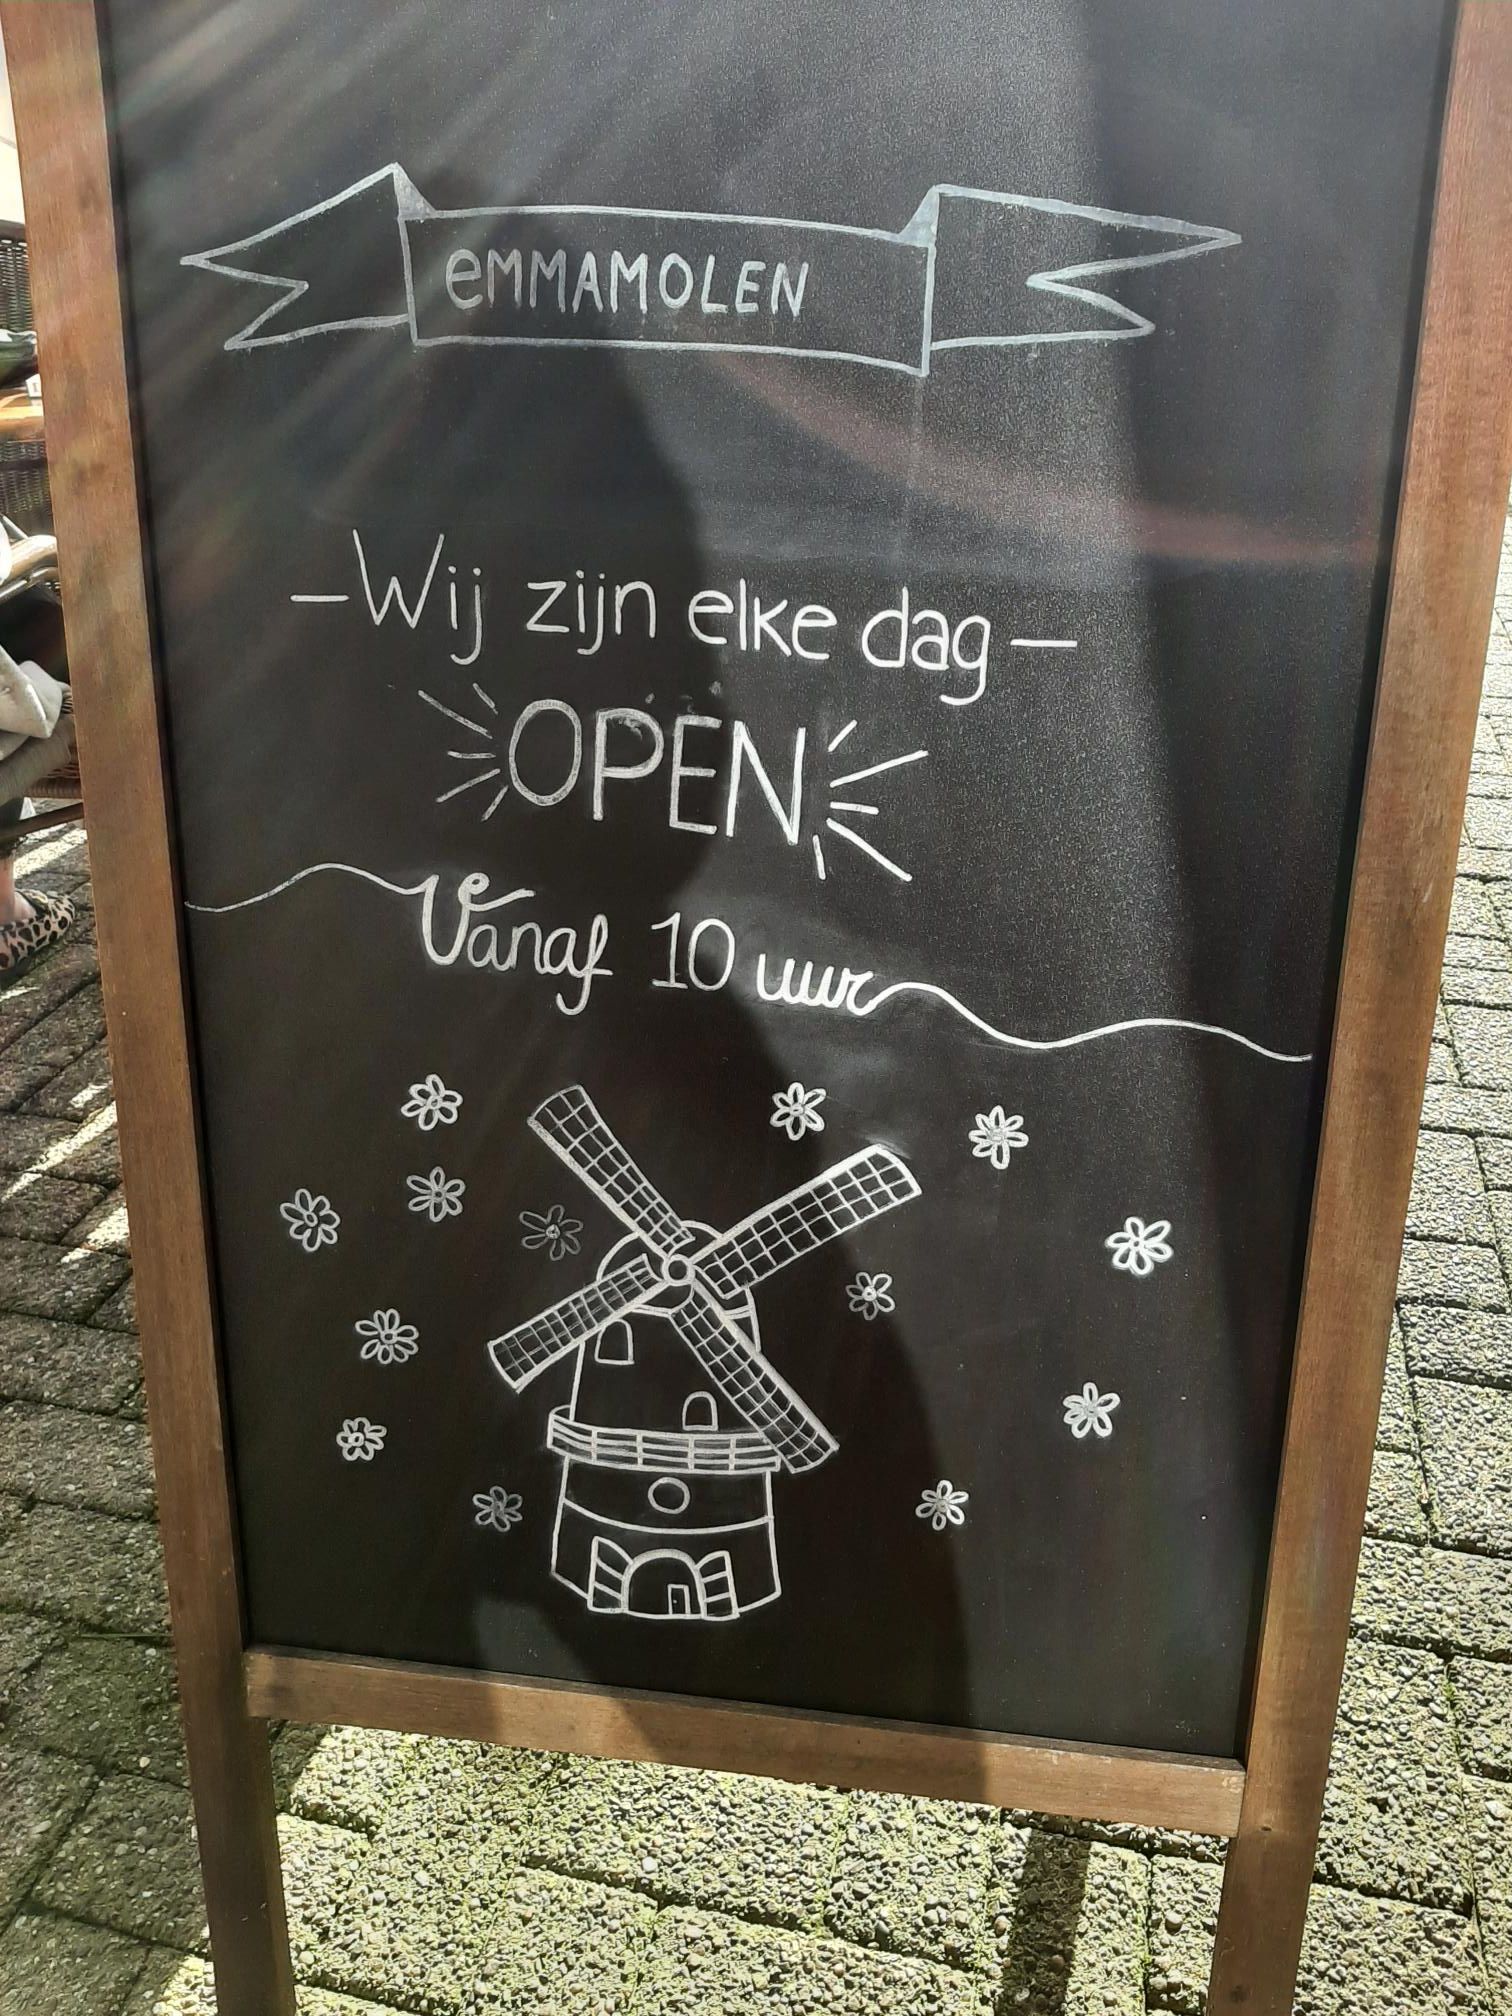 eMMAMOLEN
—Wij zijn elke dag—
OPEN
Vanaf 10 uur